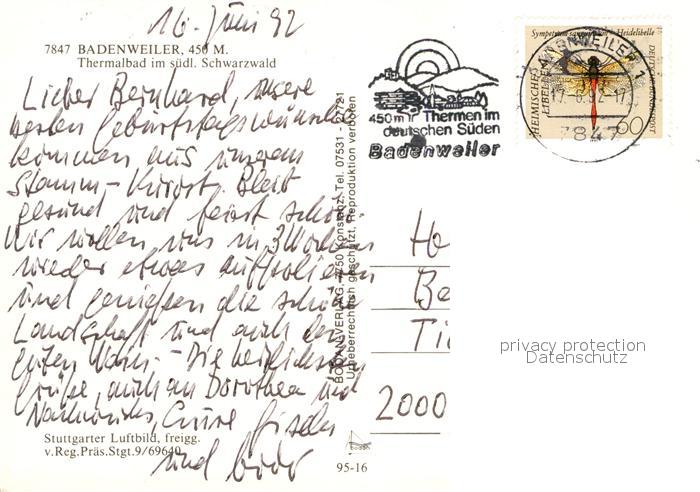 16. Juni 92
7847 BADENWEILER, 450 M.
Thermalbad im südl. Schwarzwald
Lieber Bernhard, unsere
besten Geburtstagswünsche
kommen aus unserem
Stamm-Kurort. Bleib
gesund und feiert schön.
Wir wollen uns in 3 Wochen
wieder etwas aufpolieren
und genießen die schöne
Landschaft und auch den
guten Wein. - Die herzlichsten
Grüße, auch an Dorothea und
Eure Gisela
und Bodo
Stuttgarter Luftbild, freigg.
v.Reg.Präs.Stgt.9/69640
95-16
BODANSVERLAG, 7750 Konstanz, Tel. 07531 -
Urheberrechtlich geschützt, Reproduktion verboten
450 m Thermen im
deutschen Süden
Badenweiler
Sympetrum Heidelibelle
HEIMISCHE
LIBELLEN
DEUTSCHE BUNDESPOST
60
BADENWEILER 1
17.-6.92-17
7847
Ho
Be
Ti
2000
privacy protection
Datenschutz